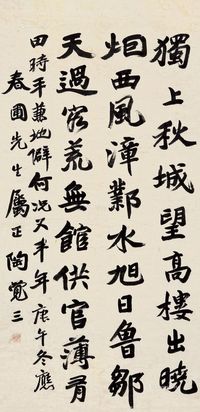 獨上秋城望高樓出曉
烟西風漳鄴水旭日魯鄒
天過客荒無館供官薄有
田時平兼地僻何況又丰年 庚午冬應
春圃先生屬正 陶覺三